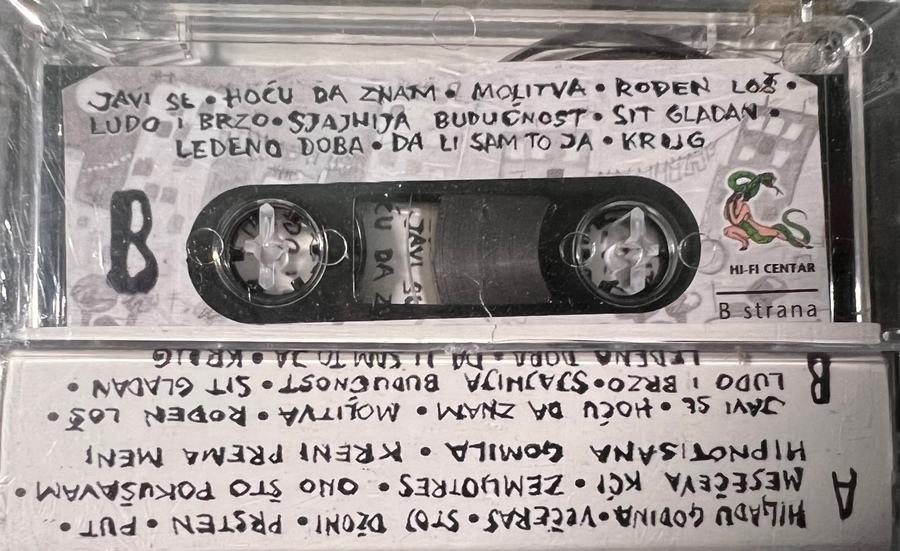 JAVI SE • HOĆU DA ZNAM • MOLITVA • ROĐEN LOŠ •
LUDO I BRZO • SJAJNIJA BUDUĆNOST • SIT GLADAN •
LEDENO DOBA • DA LI SAM TO JA • KRUG
B
JAVI SE
ĆU DA Z
HI-FI CENTAR
B strana
A
HILJADU GODINA • VEČERAS • STOJ DŽONI • PRSTEN • PUT •
MESEČEVA KĆI • ZEMLJOTRES • ONO ŠTO POKUŠAVAM •
HIPNOTISANA GOMILA • KRENI PREMA MENI
B
JAVI SE • HOĆU DA ZNAM • MOLITVA • ROĐEN LOŠ •
LUDO I BRZO • SJAJNIJA BUDUĆNOST • SIT GLADAN •
LEDENO DOBA • DA LI SAM TO JA • KRUG